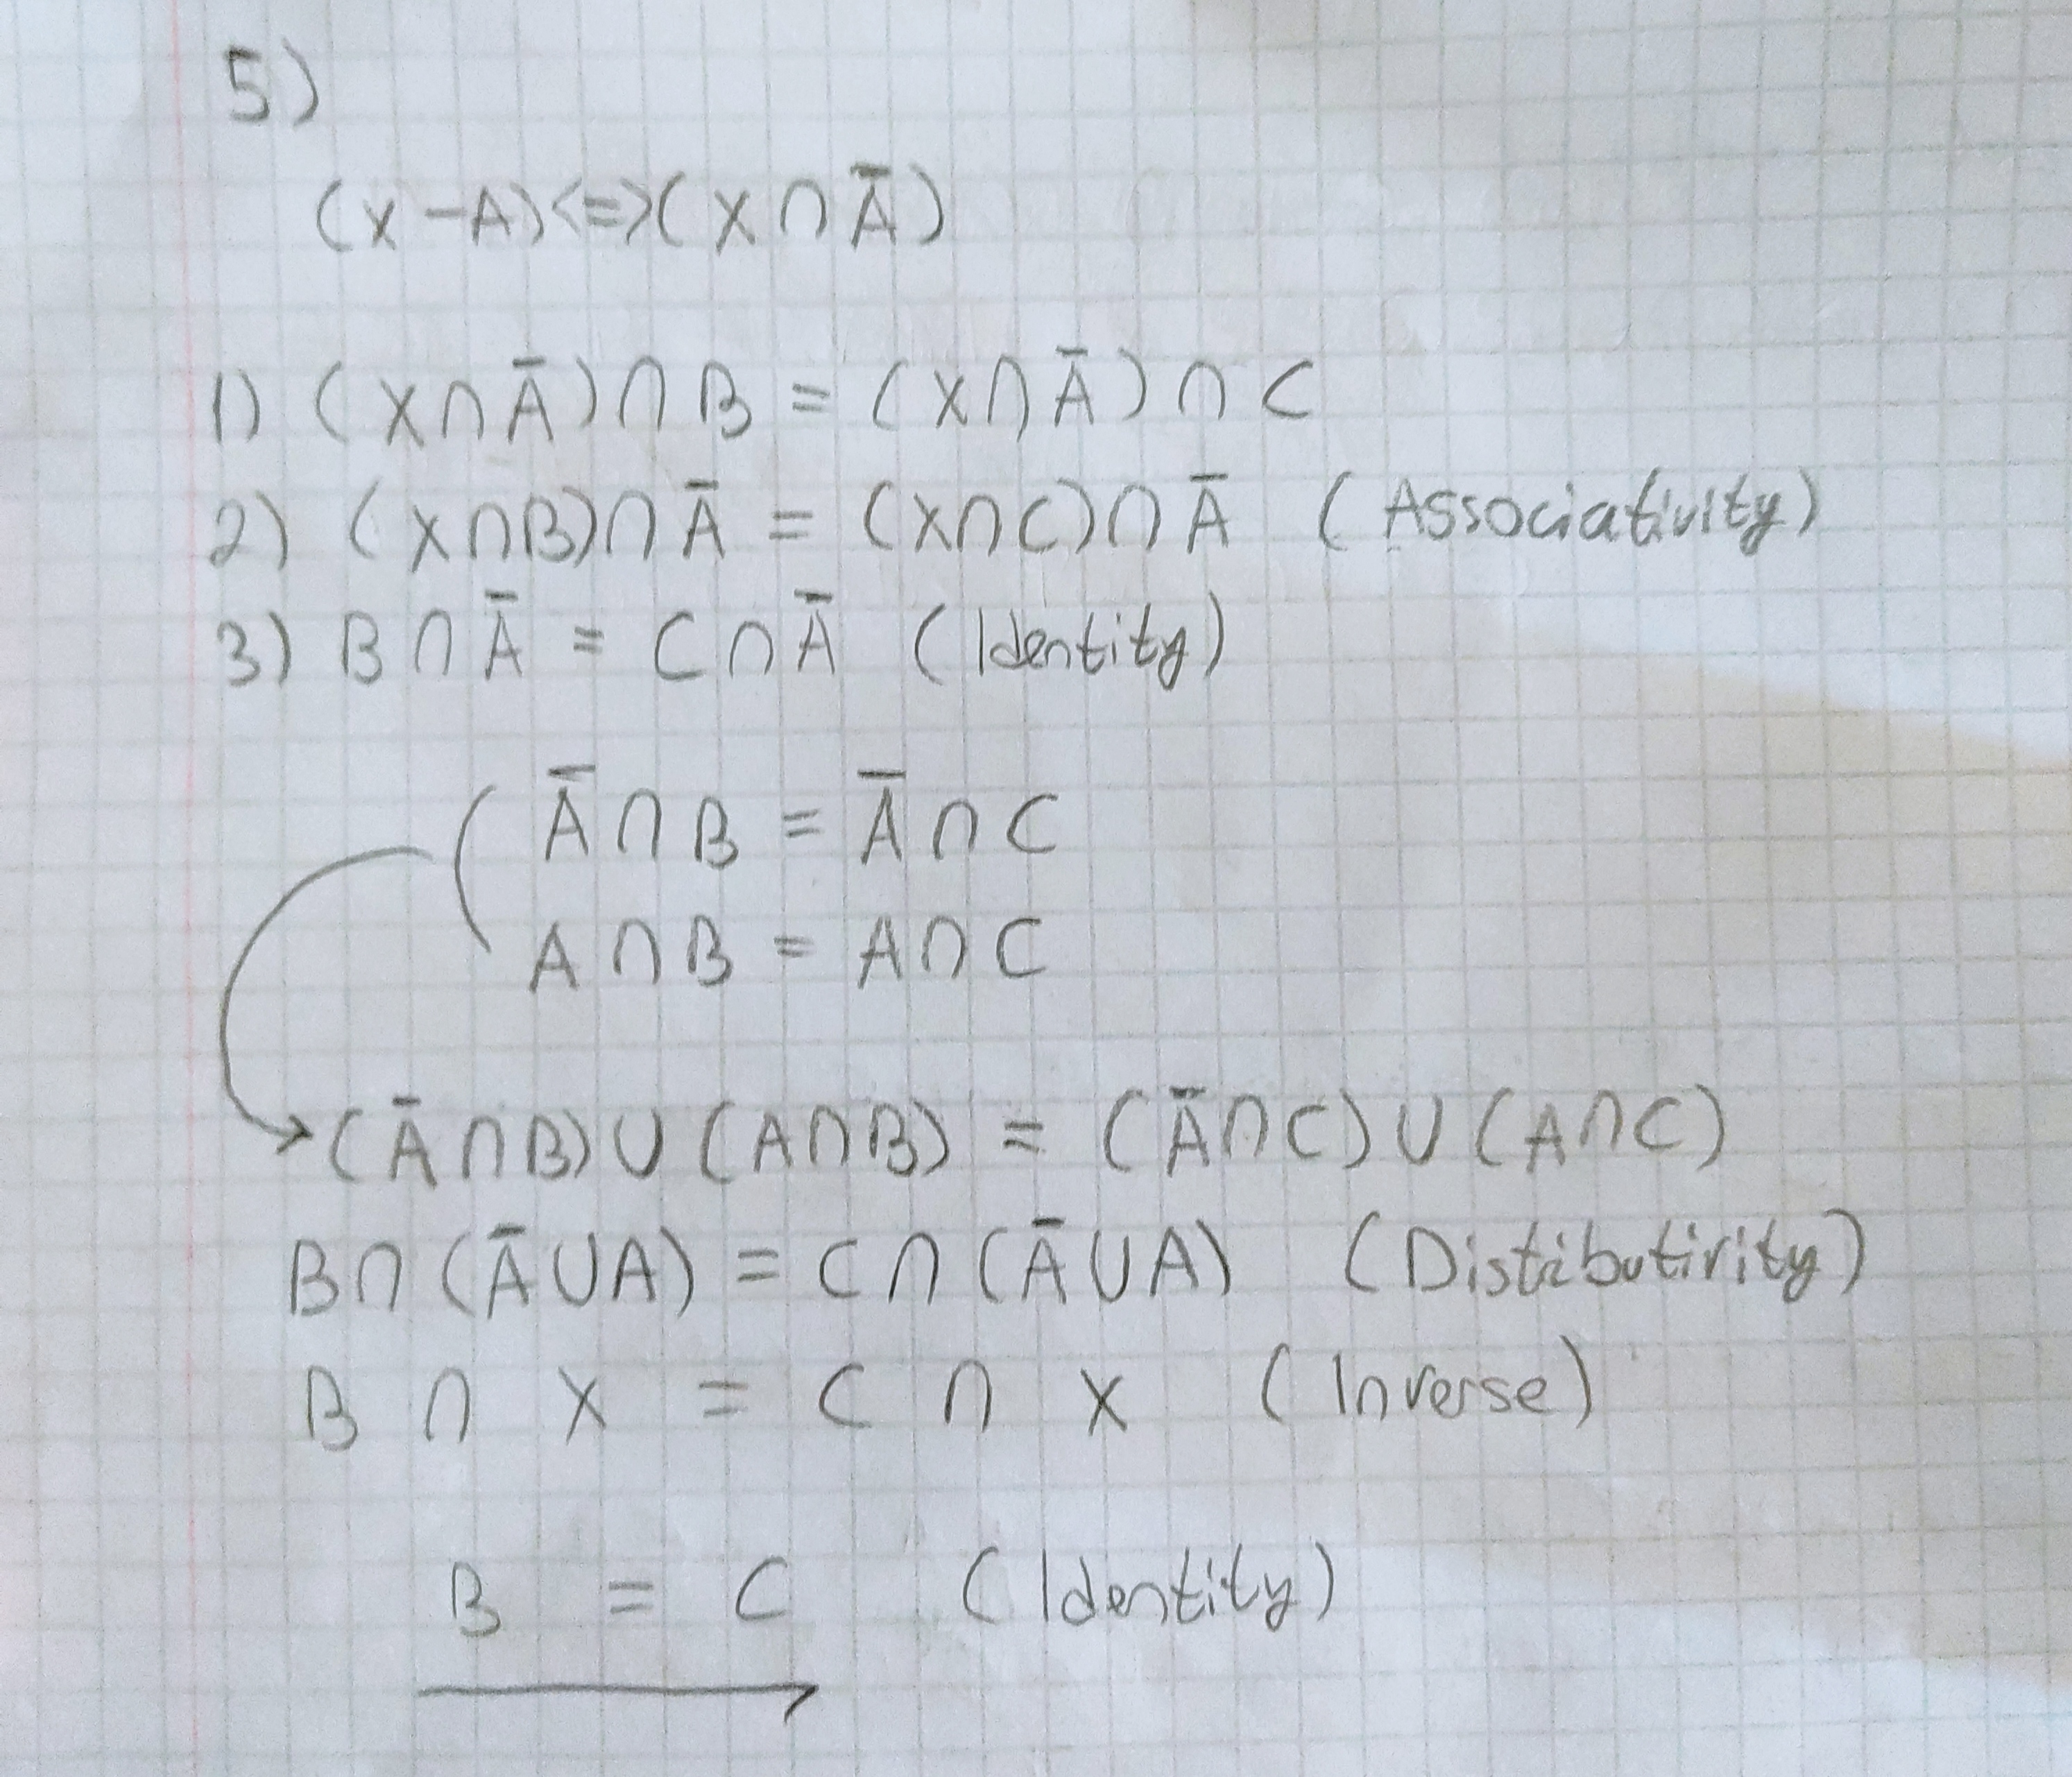 5)
(x-A)<=>(x∩Ā)
1) (x∩Ā)∩B = (x∩Ā)∩C
2) (x∩B)∩Ā = (x∩C)∩Ā (Associativity)
3) B∩Ā = C∩Ā (Identity)
Ā∩B = Ā∩C
A∩B = A∩C
(Ā∩B)∪(A∩B) = (Ā∩C)∪(A∩C)
B∩(Ā∪A) = C∩(Ā∪A) (Distributivity)
B ∩ x = C ∩ x (Inverse)
B = C (Identity)